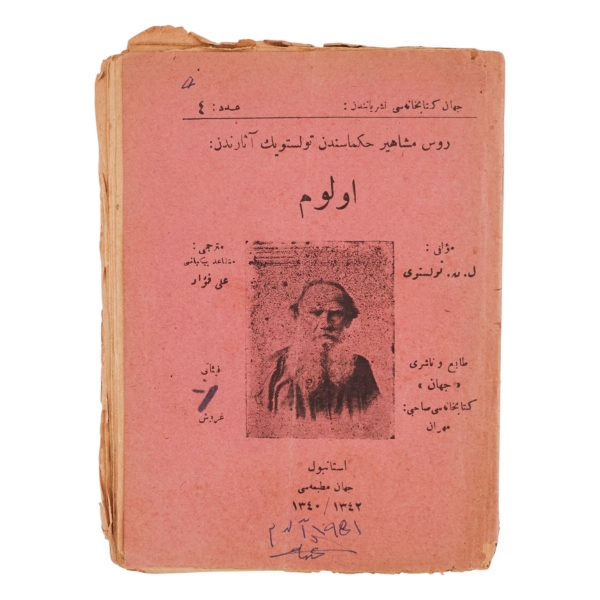 جهان كتابخانه‌سی نشریاتندن : عدد : ٤
روس مشاهیر حكماسندن تولستویك آثارندن :
اولوم
مؤلفی :
ل . ن . تولستوی
مترجمی :
متقاعد بیكباشی
علی فؤاد
طابع و ناشری
« جهان »
كتابخانه‌سی صاحبی :
مهران
فیئاتی
غروش
استانبول
جهان مطبعه‌سی
١٣٤٢ / ١٣٤٠